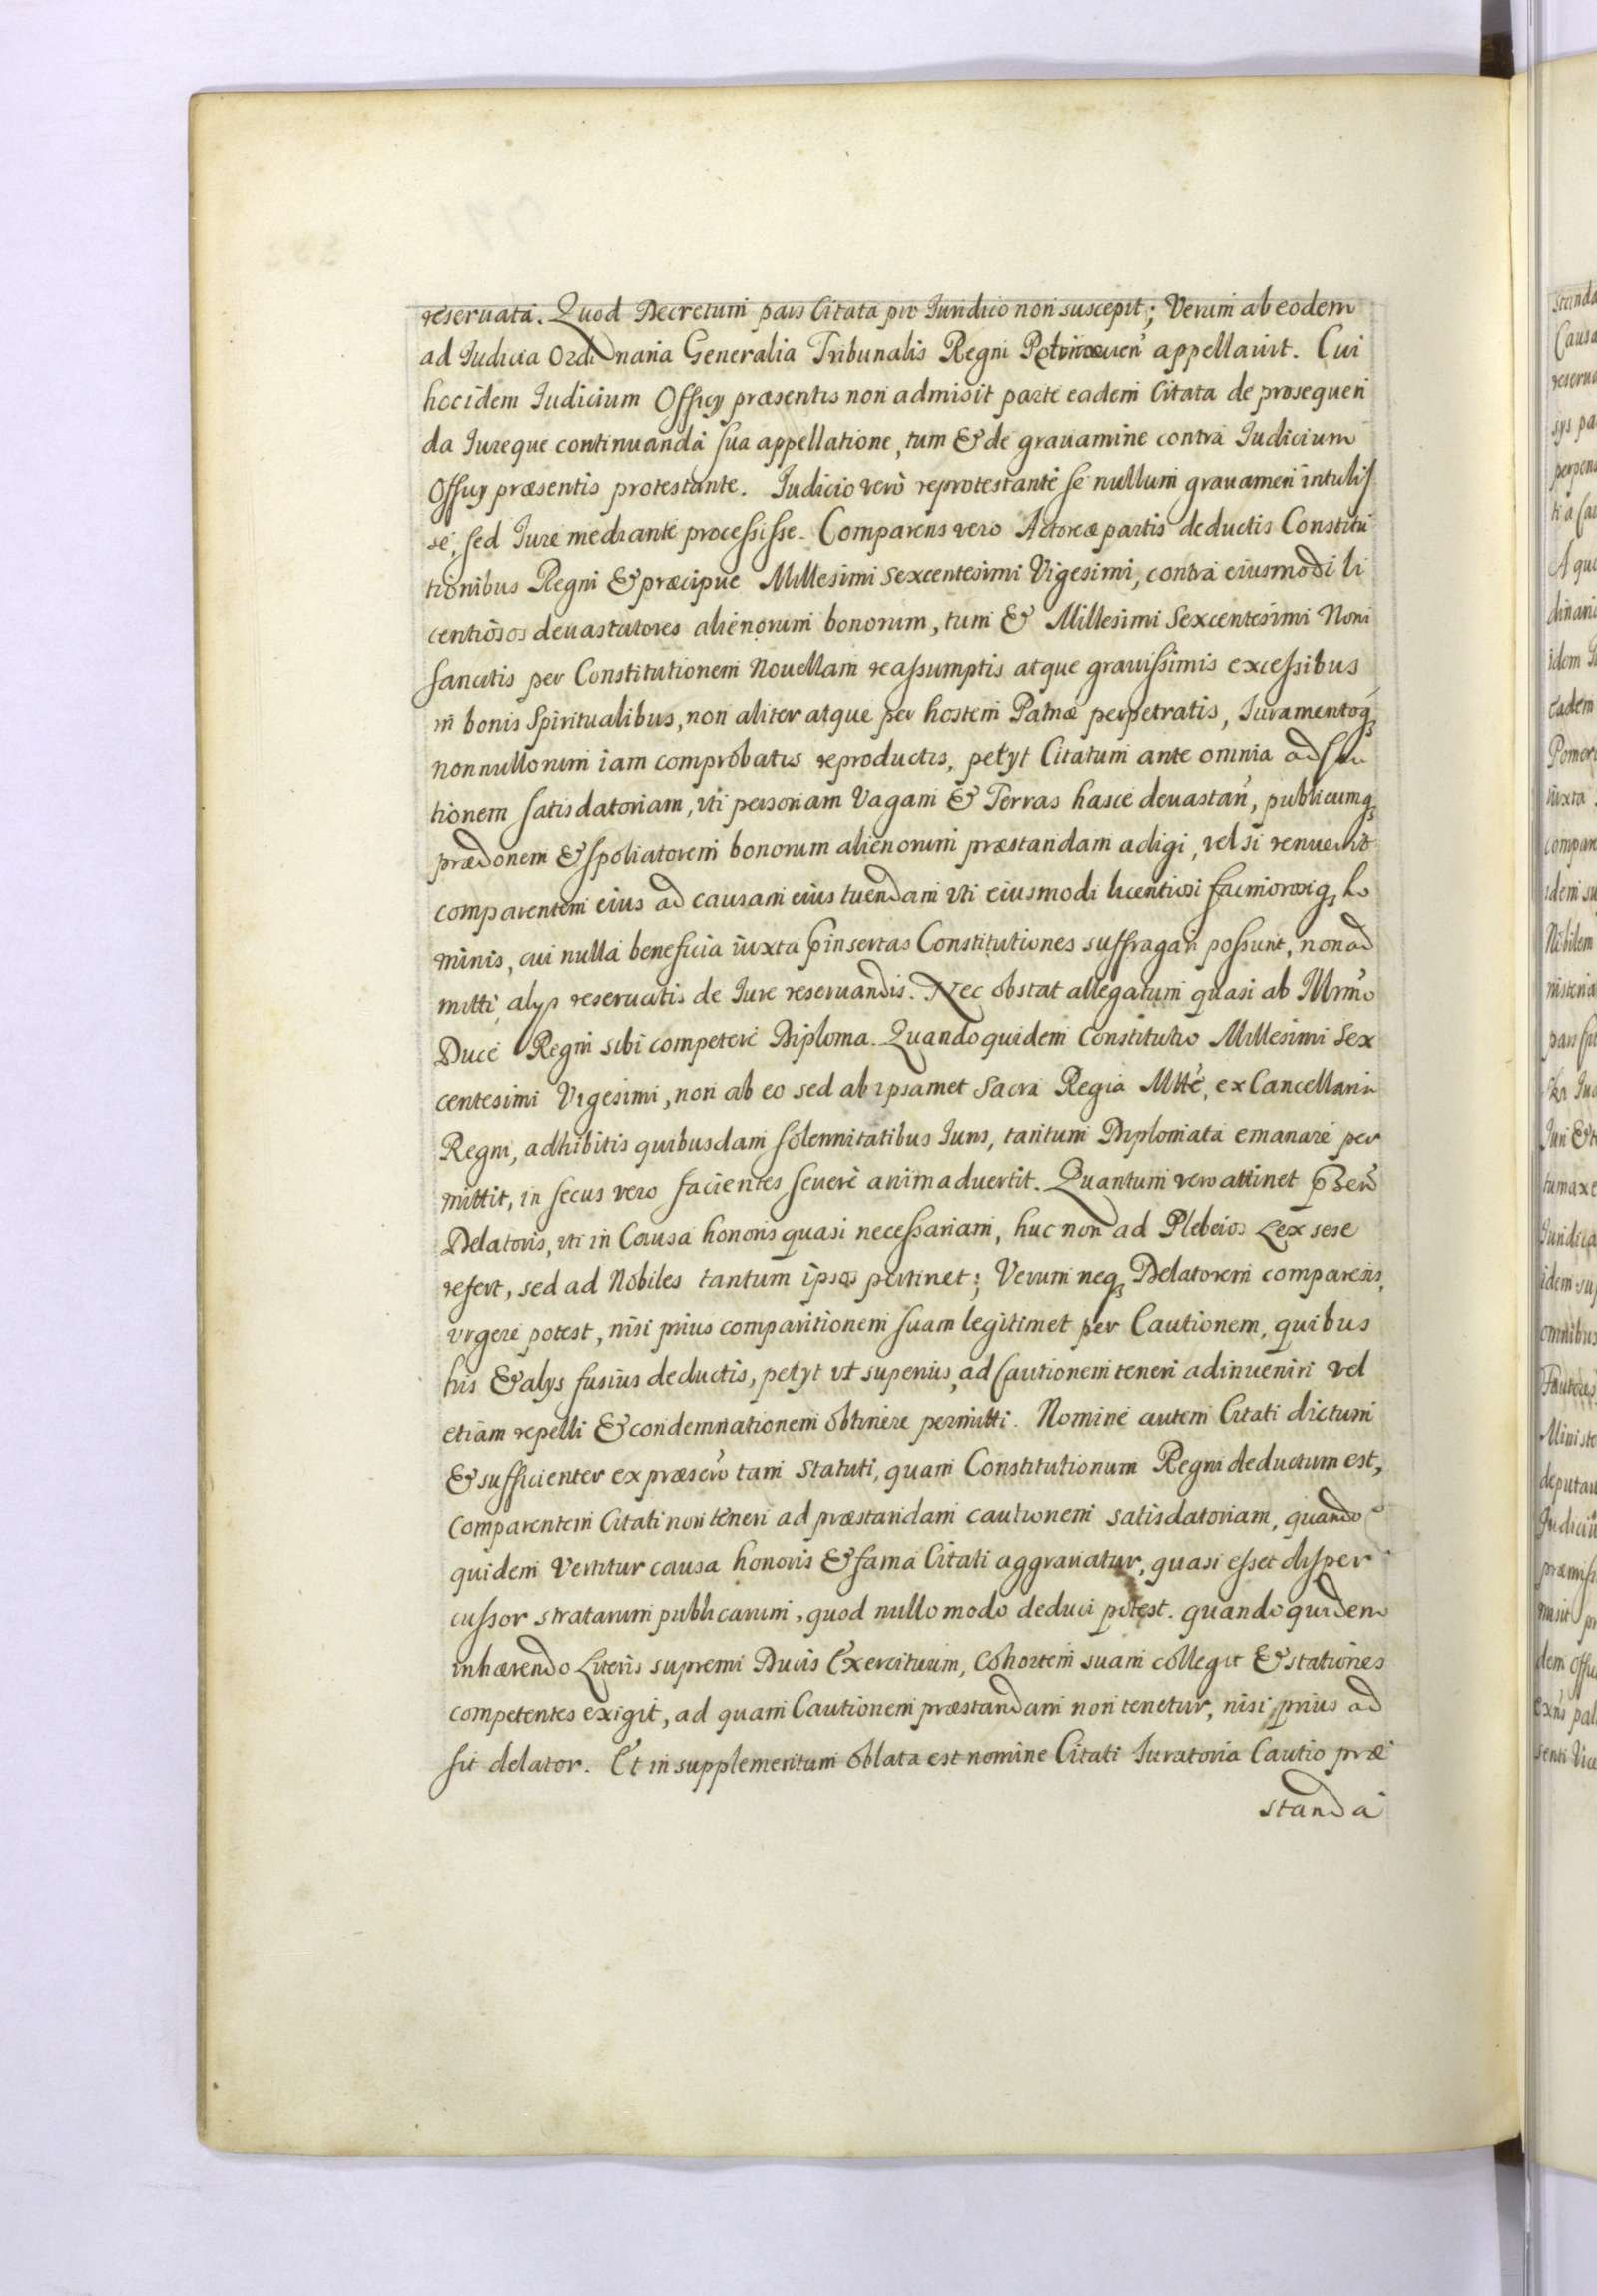 reseruata. Quod Decretum pars Citata pro Iuridico non suscepit; Verum ab eodem
ad Iudicia Ordinaria Generalia Tribunalis Regni appellauit. Cui
hoc idem Iudicium Officy præsentis non admisit parte eadem Citata de prosequen
da Iureque continuanda sua appellatione, tum & de grauamine contra Iudicium
Officy præsentis protestante. Iudicio verò reprotestante se nullum grauamen intulis
se, sed Iure mediante processisse. Comparens vero Actoreæ partis deductis Constitu
tionibus Regni & præcipue Millesimi sexcentesimi Vigesimi, contra eiusmodi li
centiosos deuastatores alienorum bonorum, tum & Millesimi Sexcentesimi Noni
sancitis per Constitutionem Nouellam reassumptis atque grauissimis excessibus
in bonis Spiritualibus, non aliter atque per hostem Patriæ perpetratis, Iuramentoq3
nonnullorum iam comprobatis reproductis, petyt Citatum ante omnia ad Cau
tionem satisdatoriam, vti personam Vagam & Terras hasce deuastan̄, publicumq3
prædonem & spoliatorem bonorum alienorum præstandam adigi, vel si renuerit
comparentem eius ad causam eius tuendam vti eiusmodi licentiosi facinorosiq3 ho
minis, cui nulla beneficia iuxta p̱insertas Constitutiones suffragari possunt, non ad
mitti, alys reseruatis de Iure reseruandis. Nec obstat allegatum quasi ab Illrmo
Duce Regni sibi competere Diploma. Quandoquidem Constitutio Millesimi Sex
centesimi Vigesimi, non ab eo sed ab ipsamet Sacra Regia Mtte, ex Cancellaria
Regni, adhibitis quibusdam solennitatibus Iuris, tantum Diplomata emanare per
mittit, in secus vero facientes seuere animaduertit. Quantum vero attinet
Delatoris, vti in Causa honoris quasi necessariam, huc non ad Plebeios Lex sese
refert, sed ad Nobiles tantum ipsos pertinet; Verum neq3 Delatorem comparens,
vrgere potest, nisi prius comparitionem suam legitimet per Cautionem, quibus
his & alys fusius deductis, petyt vt superius, ad Cautionem teneri adinueniri vel
etiam repelli & condemnationem obtinere permitti. Nomine autem Citati dictum
& sufficienter ex præscro tam Statuti, quam Constitutionum Regni deductum est,
Comparentem Citati non teneri ad præstandam cautionem satisdatoriam, quando
quidem vertitur causa honoris & fama Citati aggrauatur, quasi esset disper
cussor stratarum publicarum, quod nullo modo deduci potest. quandoquidem
inhærendo Literis supremi Ducis Exercituum, Cohortem suam collegit & stationes
competentes exigit, ad quam Cautionem præstandam non tenetur, nisi prius ad
sit delator. Et in supplementum oblata est nomine Citati Iuratoria Cautio præ
standa